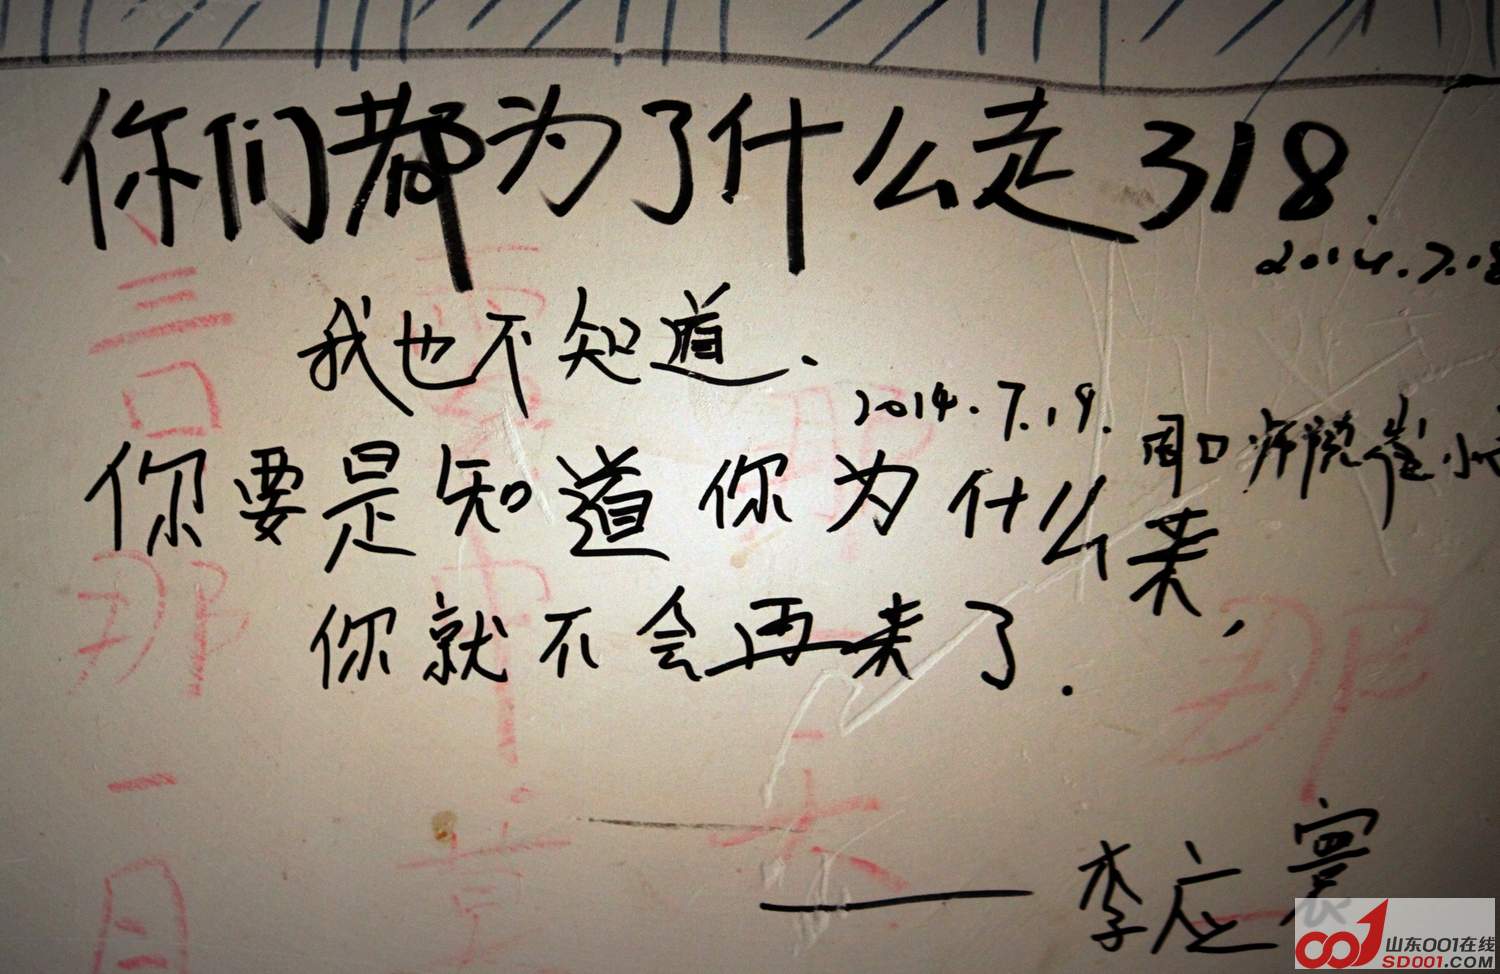 你们都为了什么走318.
2014.7.18
我也不知道.
2014.7.19.
周口师院崔小
你要是知道你为什么来,
你就不会再来了.
——李应寰
山东001在线
SD001.COM